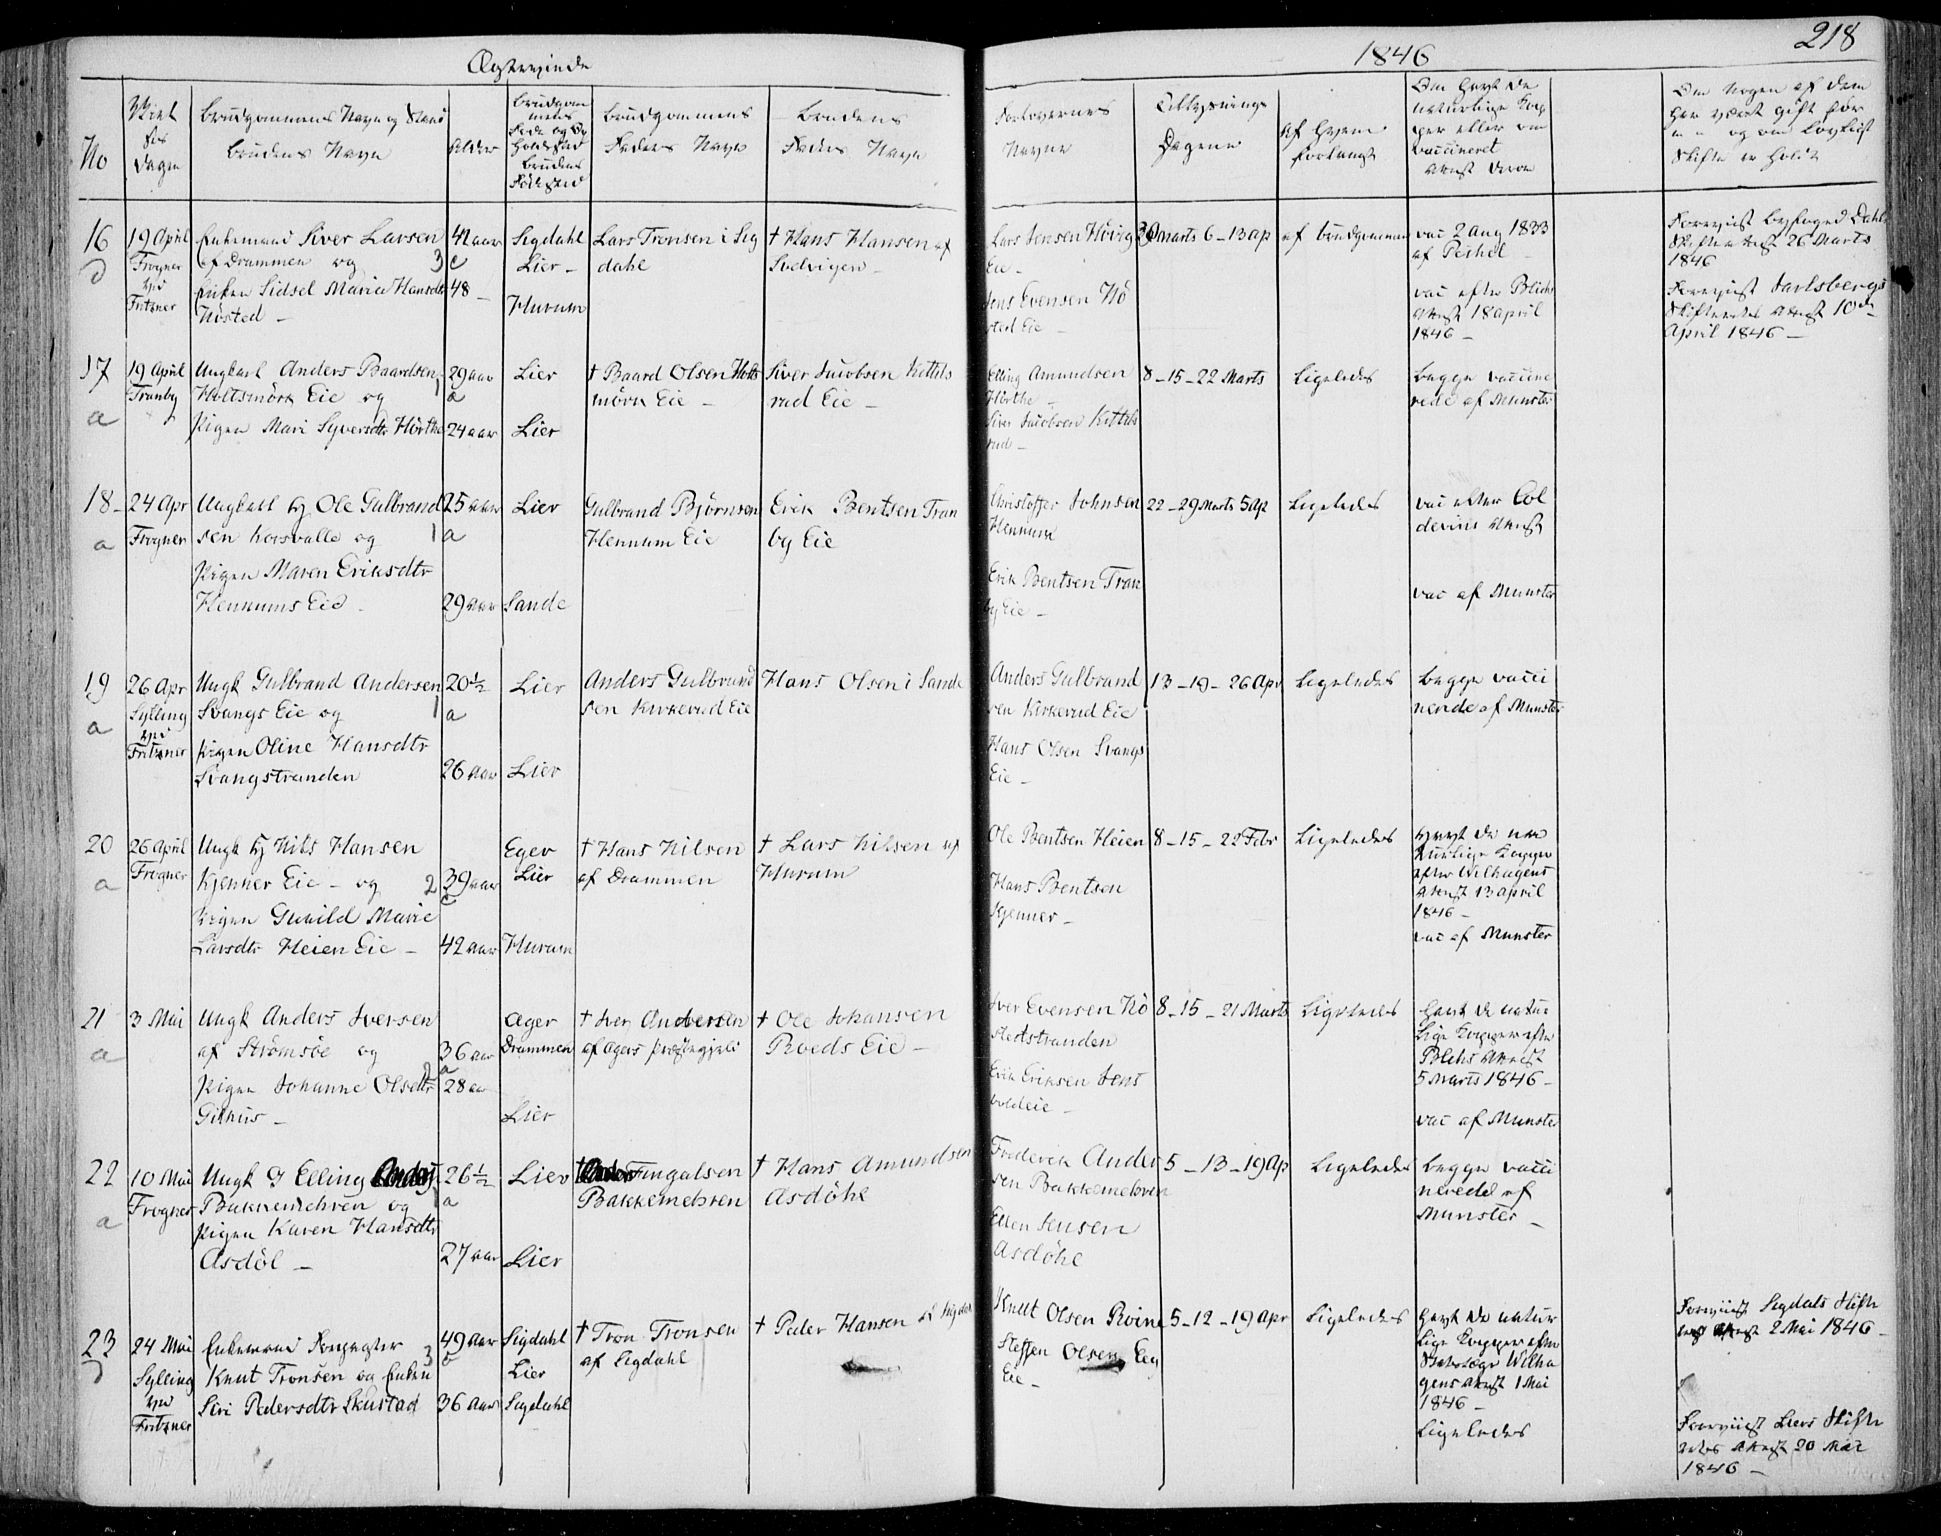 Ægteviede
1846
218
No
Viet
Dagen
Brudgommens Navn og Stand
Brudens Navn
Alder
Brudgom
mens
Føde og
Brudens
Fødested
Brudgommens
Faders Navn
Brudens
Faders Navn
Forlovernes
Navne
Tillysnings
Dagene
Af hvem
forlangt
Om havt de
naturlige Kop
per eller om
vaccineret
Attest derom
Om Nogen af dem
har været gift før
og om lovligt
Skifte er holdt
16
19 April
Frogner
ved
Fritzner
Enkemand Siver Larsen
af Drammen og 3
Enken Sidsel Maria Hansdtr
Nøsted –
41 aar
c
48 –
Sigdahl
Lier –
Hurum
Lars Tronsen i Sig
dahl
† Hans Hansen af
Sedvigen –
Lars Jensen Høvig
Eie –
Jens Evensen Nø
sted Eie –
Marts 6 – 13 ap
af brudgommen
vac 2 aug 1833
af Peshel –
vac efter Blichs
Attest 18 april
1846 –
Foreviist Byfoged Dahls
Skifte Attest 26 Marts
1846
Foreviist Jarlsbergs
Skifteretts Attest 10de
April 1846 –
17
a
19 April
Tranby
Ungkarl Anders Baardsen
Holtsmørk Eie og 1
Pigen Mari Syversdtr Hørthe
29 aar
a
24 aar
Lier
Lier
† Baard Olsen Holts
mørk Eie –
Siver Jacobsen Kittils
rud Eie –
Elling Amundsen
Hørthe –
Siver Jacobsen Kittils
rud –
8 – 15 – 22 Marts
Ligeledes
begge vaccine
rede af Munster
18 –
a
24 Apr
Frogner
Ungkarl Hj Ole Gulbrand
sen Korsvalle og 1
Pigen Maren Eriksdtr
Hennums Eie –
25 aar
a
29 aar
Lier
Sande
Gulbrand Bjørnsen
Hennum Eie
Erik Bentsen Tran
by Eie
Christoffer Johnsen
Hennum
Erik Bentsen Tran
by Eie –
22 – 29 Marts 5 Ap
Ligeledes
vac efter Col
devins Attest
vac af Munster
19
a
26 Apr
Sylling
ved
Fritzner
Ungk Gulbrand Andersen
Svangs Eie og 1
Pigen Oline Hansdtr
Svangstranden
20½
a
26 aar
Lier
Lier
Anders Gulbrand
sen Kirkerud Eie
Hans Olsen i Sande
Anders Gulbrand
sen Kirkerud Eie
Hans Olsen Svangs
Eie –
13 – 19 – 26 Apr
Ligeledes
begge vacci
nerede af Munster
20
a
26 April
Frogner
Ungk Hj Nils Hansen
Kjenner Eie – og 2
Pigen Gunild Marie
Larsdtr Heien Eie –
39 aar
c
42 aar
Eger
Lier
Hurum
† Hans Nilsen
af Drammen
† Lars Nilsen af
Hurum
Ole Bentsen Heien
Hans Bentsen
Kjenner –
8 – 15 – 22 Febr
Ligeledes
havt de na
turlige Kopper
efter Wilhagens
Attest 13 april
1846 –
vac af Munster
21
a
3 Mai
Ungk Anders Iversen
af Strømsøe og
Pigen Johanne Olsdtr
Gilhus –
36 aar
a
28 aar
Ager
Drammen
Lier
† Iver Andersen
af Agers Præstegjeld
† Ole Johansen
Roeds Eie –
Iver Evensen Nø
stedstranden
Erik Eriksen Jens
voldeie –
8 – 15 – 21 Marts
Ligeledes
havt de natur
lige Kopper efter
Blichs Attest
5 Marts 1846 –
vac af Munster
22
a
10 Mai
Frogner
Ungk G Elling
Bakkemehren og
Pigen Karen Hansdtr
Asdøl –
26½
a
27 aar
Lier
Lier
† Fingalsen
Bakkemehren
† Hans Amundsen
Asdøhl
Frederik Ander
sen Bakkemehren
Ellen Jensen
Asdøhl
5 – 13 – 19 Ap
Ligeledes
begge vacci
nerede af
Munster –
23
24 Mai
Sylling
ved
Fritzner
Enkemand Forpagter 3
Knut Tronsen og Enken
Siri Pedersdtr Skustad
49 aar
36 aar
Sigdahl
Lier
Sigdahl
† Tron Tronsen
af Sigdahl
† Peder Hansen af Sigdal
Knut Olsen Roine
Steffen Olsen Eeg
Eie –
5 – 12 – 19 Apr
Ligeledes
havt de natur
lige Kopper efter
Wilha
gens Attest 1 Mai
1846 –
Ligeledes
Foreviist Sigdals Skifte
Attest 2 Mai 1846 –
Foreviist Liers Skifte
retts Attest 20 Mai
1846 –